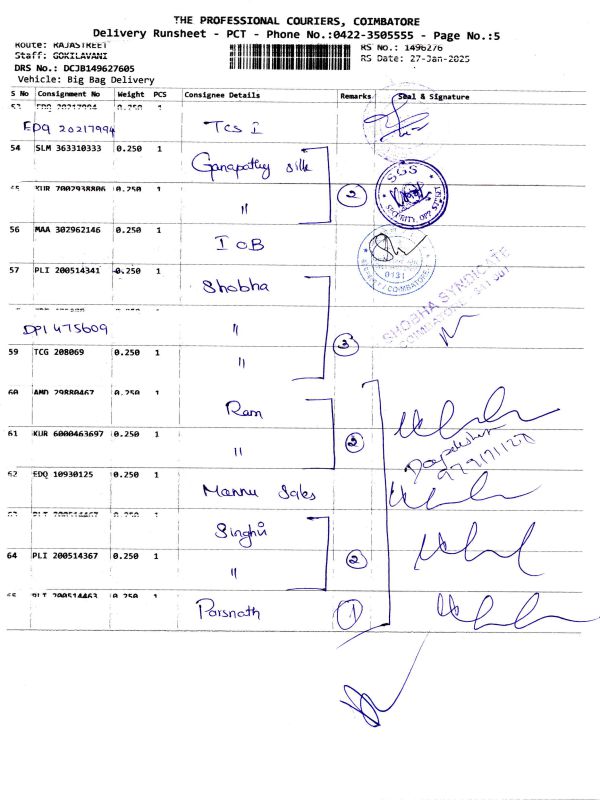 THE PROFESSIONAL COURIERS, COIMBATORE
Delivery Runsheet - PCT - Phone No.:0422-3505555 - Page No.:5
Route: RAJASTREET
RS No.: 1496276
Staff: GOKILAVANI
RS Date: 27-Jan-2025
DRS No.: DCJB149627605
Vehicle: Big Bag Delivery
S No Consignment No Weight PCS Consignee Details Remarks Seal & Signature
53 EDQ 20217994 0.250 1
EDQ 20217994 Tcs I
54 SLM 363310333 0.250 1 Ganapathy silk
SGS
2
55 KUR 7002938806 0.250 1 "
56 MAA 302962146 0.250 1 I OB
57 PLI 200514341 0.250 1 Shobha
SHOBHA SYNDICATE
DPI 475609 "
3
59 TCG 208069 0.250 1 "
60 AMD 29880467 0.250 1 Ram
2
61 KUR 6000463697 0.250 1 "
62 EDQ 10930125 0.250 1 Mannu Sales
63 PLI 200514467 0.250 1 Singhu
64 PLI 200514367 0.250 1 "
2
65 PLI 200514463 0.250 1 Parsnath 1